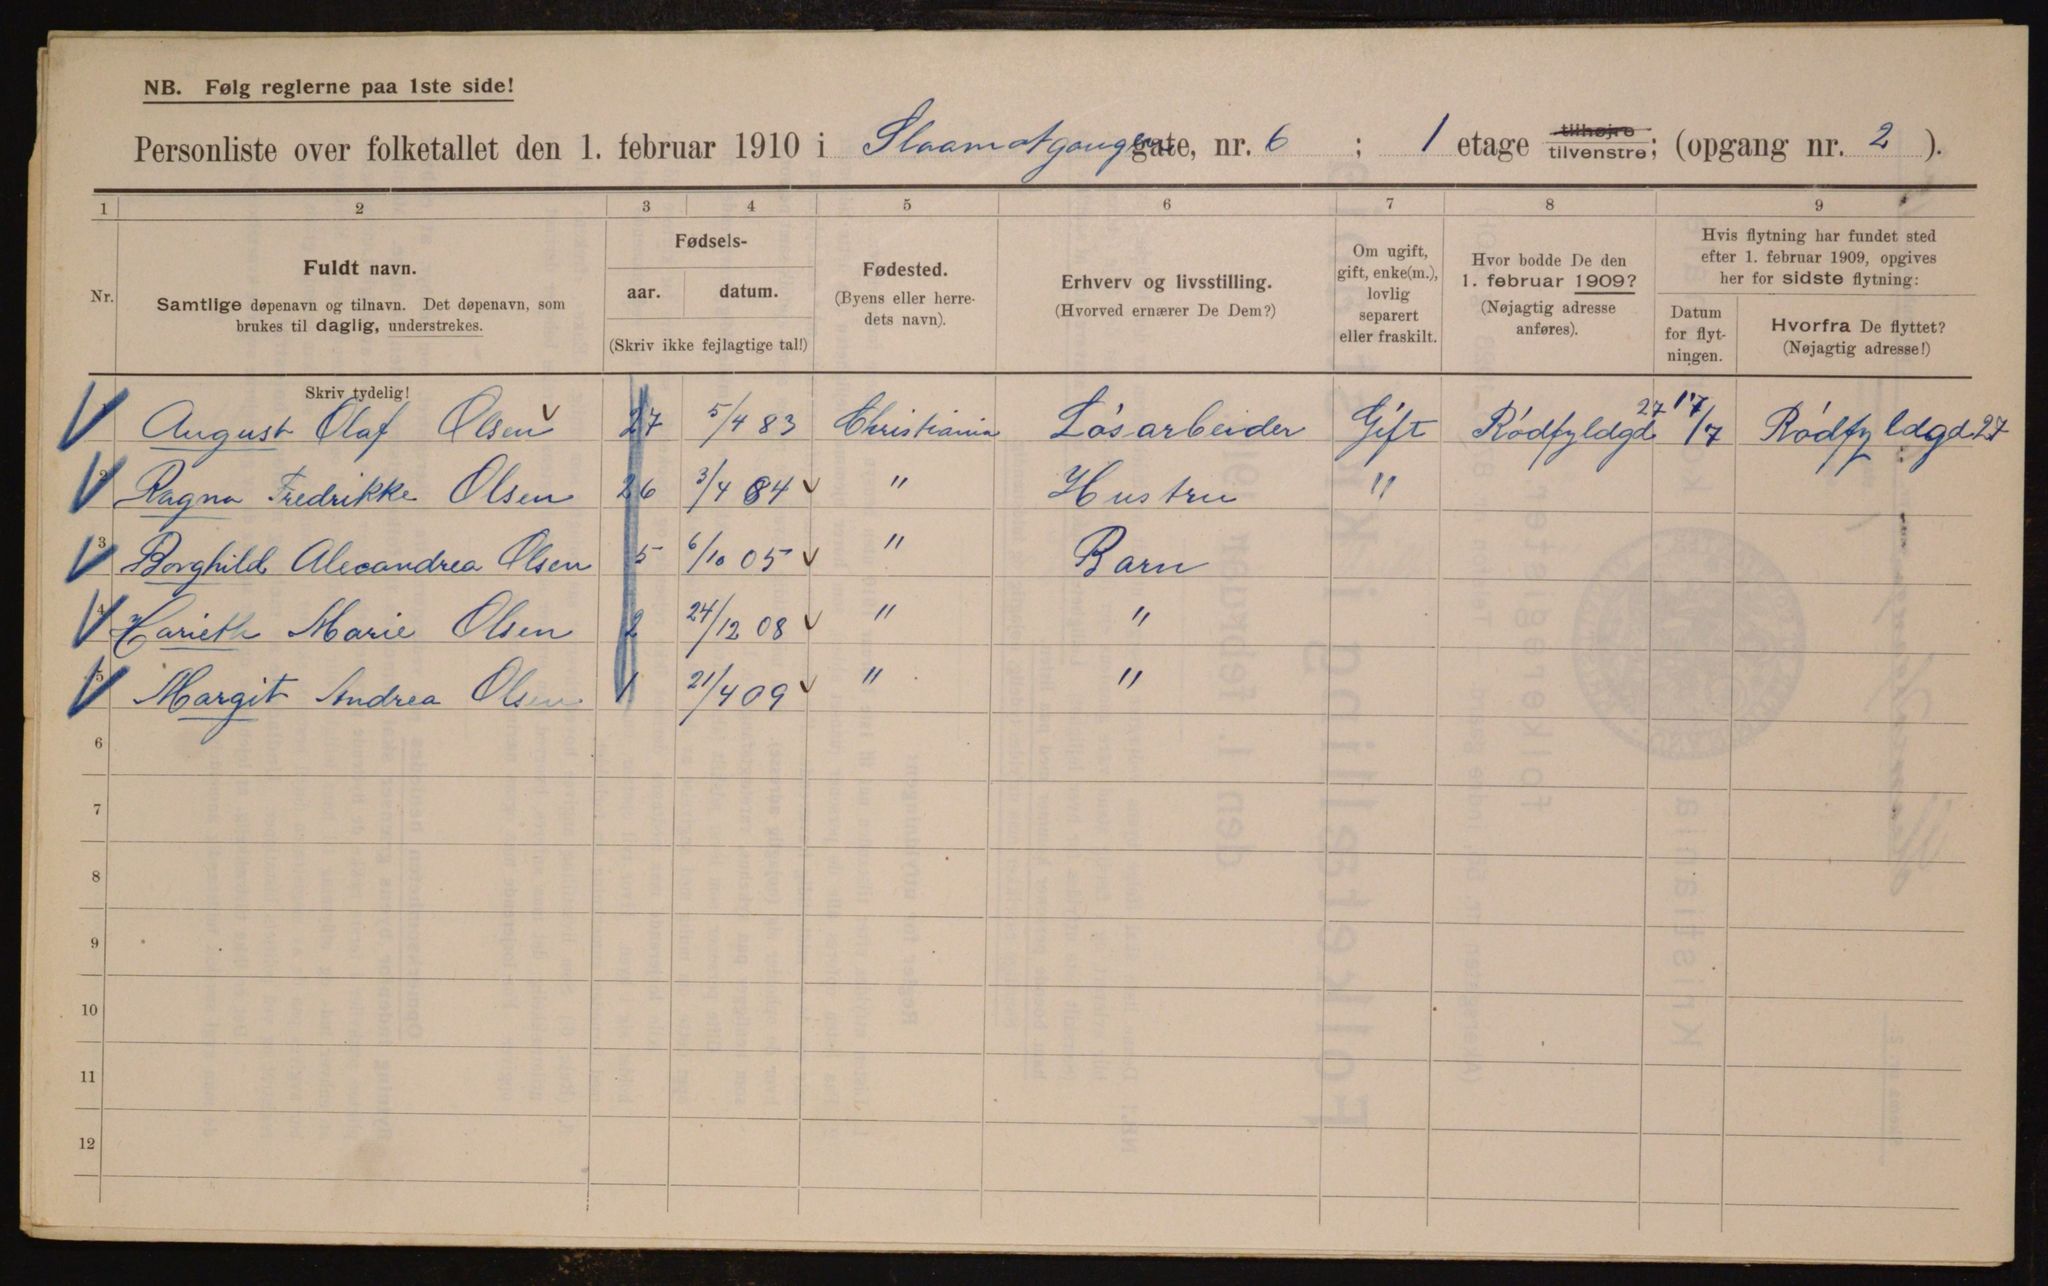 NB. Følg reglerne paa 1ste side!
Personliste over folketallet den 1. februar 1910 i Slaamotgangen gate, nr. 6 ; 1 etage tilhøjre tilvenstre; (opgang nr. 2 ).
1 2 3 4 5 6 7 8 9
Nr.
Fuldt navn.
Samtlige døpenavn og tilnavn. Det døpenavn, som
brukes til daglig, understrekes.
Skriv tydelig!
Fødsels-
aar. datum.
(Skriv ikke fejlagtige tal!)
Fødested.
(Byens eller herre-
dets navn).
Erhverv og livsstilling.
(Hvorved ernærer De Dem?)
Om ugift,
gift, enke(m.),
lovlig
separert
eller fraskilt.
Hvor bodde De den
1. februar 1909?
(Nøjagtig adresse
anføres).
Hvis flytning har fundet sted
efter 1. februar 1909, opgives
her for sidste flytning:
Datum
for flyt-
ningen.
Hvorfra De flyttet?
(Nøjagtig adresse!)
August Olaf Olsen 27 5/4 83 Christiania Løsarbeider Gift Rødfyldgd 27 17/7 Rødfyldgd 27
2 Ragna Fredrikke Olsen 26 3/4 84 " Hustru "
3 Borghild Alexandrea Olsen 5 6/10 05 " Barn
4 Harieth Marie Olsen 2 24/12 08 " "
5 Margit Andrea Olsen 1 21/4 09 " "
6
7
8
9
10
11
12